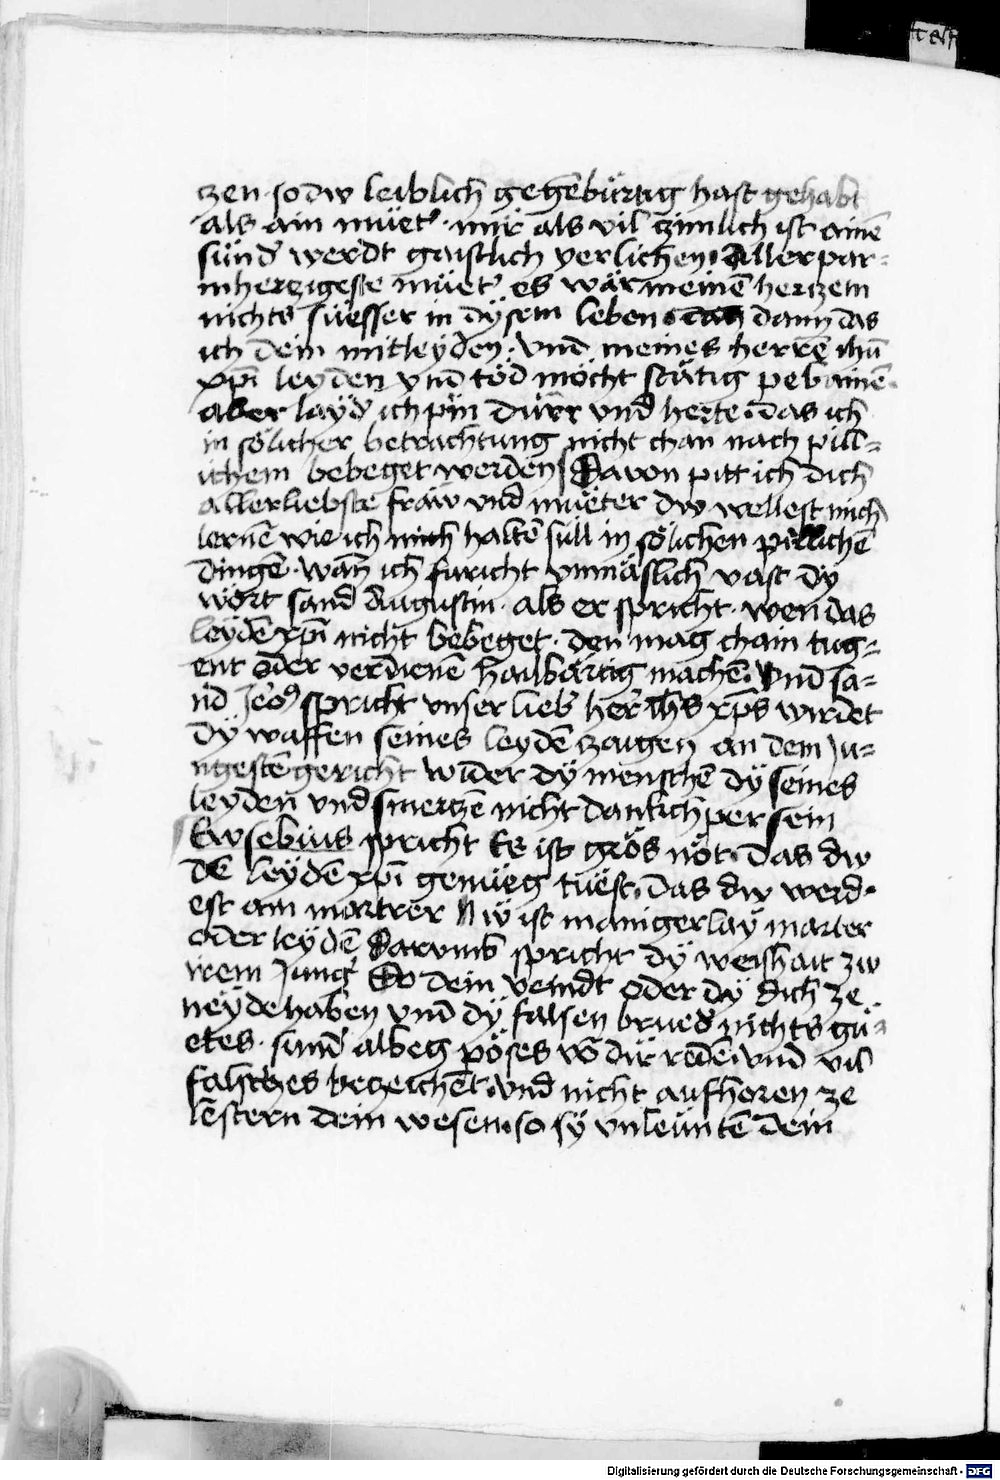 zen · so dw leiblich gegēbürtig hast gehabt
als ain mueť · mir als vil zimlich ist ainē
sünď werdt gaistlich verlichen · Aller par-
mherczigeste mueť es wär meinē herczem
nichts süesser in dysem leben · dann das
ich dein mitleyden · vnd meines herrē ihū
xpī leyden vnd töd möcht stätig pebainē ·
aber layď ich pin dürr vnd herte · das ich
in sölicher betrachtung nicht chan nach pill-
ichem bebeget werden Davon pitt ich dich
allerliebste fraw vnd mueter dw wellest mich
lernē wie ich mich haltē süll in sölichen pillichē
dingē · wan̄ ich furicht vnmäslich vast dy
wort sand Augustin · als er spricht · wen das
leydē xpī nicht bebeget · den mag chain tug-
ent oder verdienē hailbärtig machē · Vnd sa-
nd spricht vnser lieb' her' ihs xps wirdet
dy waffen seines leydē zaigen an dem Ju-
ngestē gericht wider dy menschē dy seines
leyden vnd smerczē nicht dankchper sein
Ewsebius spricht Es ist grös nöt · das dw
dē leydē xpī genueg tuest · das dw werd-
est ain martrer Nw ist manigerlay marter
oder leydē Darvmb spricht dy weishait zw
irem Jung' So dein veindt oder dy dich ze
neyde haben vnd dy falsen brueď nichts gu-
etes · sunď albeg pöses vō dir redē vnd vil
falsches bezeichēt · vnd nicht aufhoren ze
lestern dein wesem · so sy vnleuntē dein
Digitalisierung gefördert durch die Deutsche Forschungsgemeinschaft - DFG